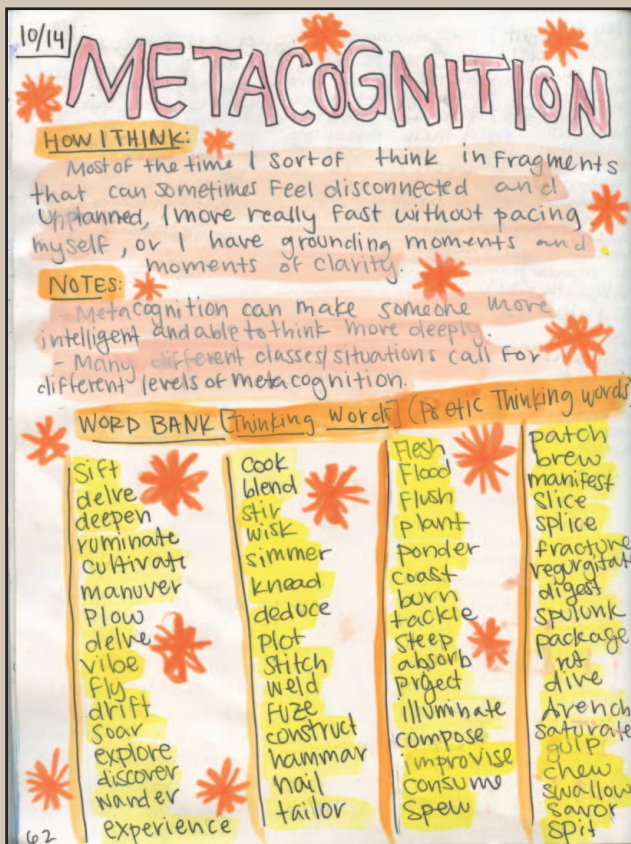 10/14
METACOGNITION
HOW I THINK:
Most of the time I sort of think in fragments
that can sometimes feel disconnected and
unplanned, I move really fast without pacing
myself, or I have grounding moments and
moments of clarity.
NOTES:
- Metacognition can make someone more
intelligent and able to think more deeply.
- Many different classes/situations call for
different levels of metacognition.
WORD BANK [Thinking words] (Poetic Thinking words)
Sift
delve
deepen
ruminate
cultivate
manuver
Plow
delve
vibe
fly
drift
Soar
explore
discover
wander
experience
cook
blend
stir
wisk
simmer
knead
deduce
plot
stitch
weld
fuze
construct
hammar
nail
tailor
Flesh
Flood
flush
plant
ponder
coast
burn
tackle
steep
absorb
project
illuminate
compose
improvise
consume
spew
patch
brew
manifest
slice
splice
fracture
regurgitate
digest
spulunk
package
rot
dive
drench
saturate
gulp
chew
swallow
savor
spit
62